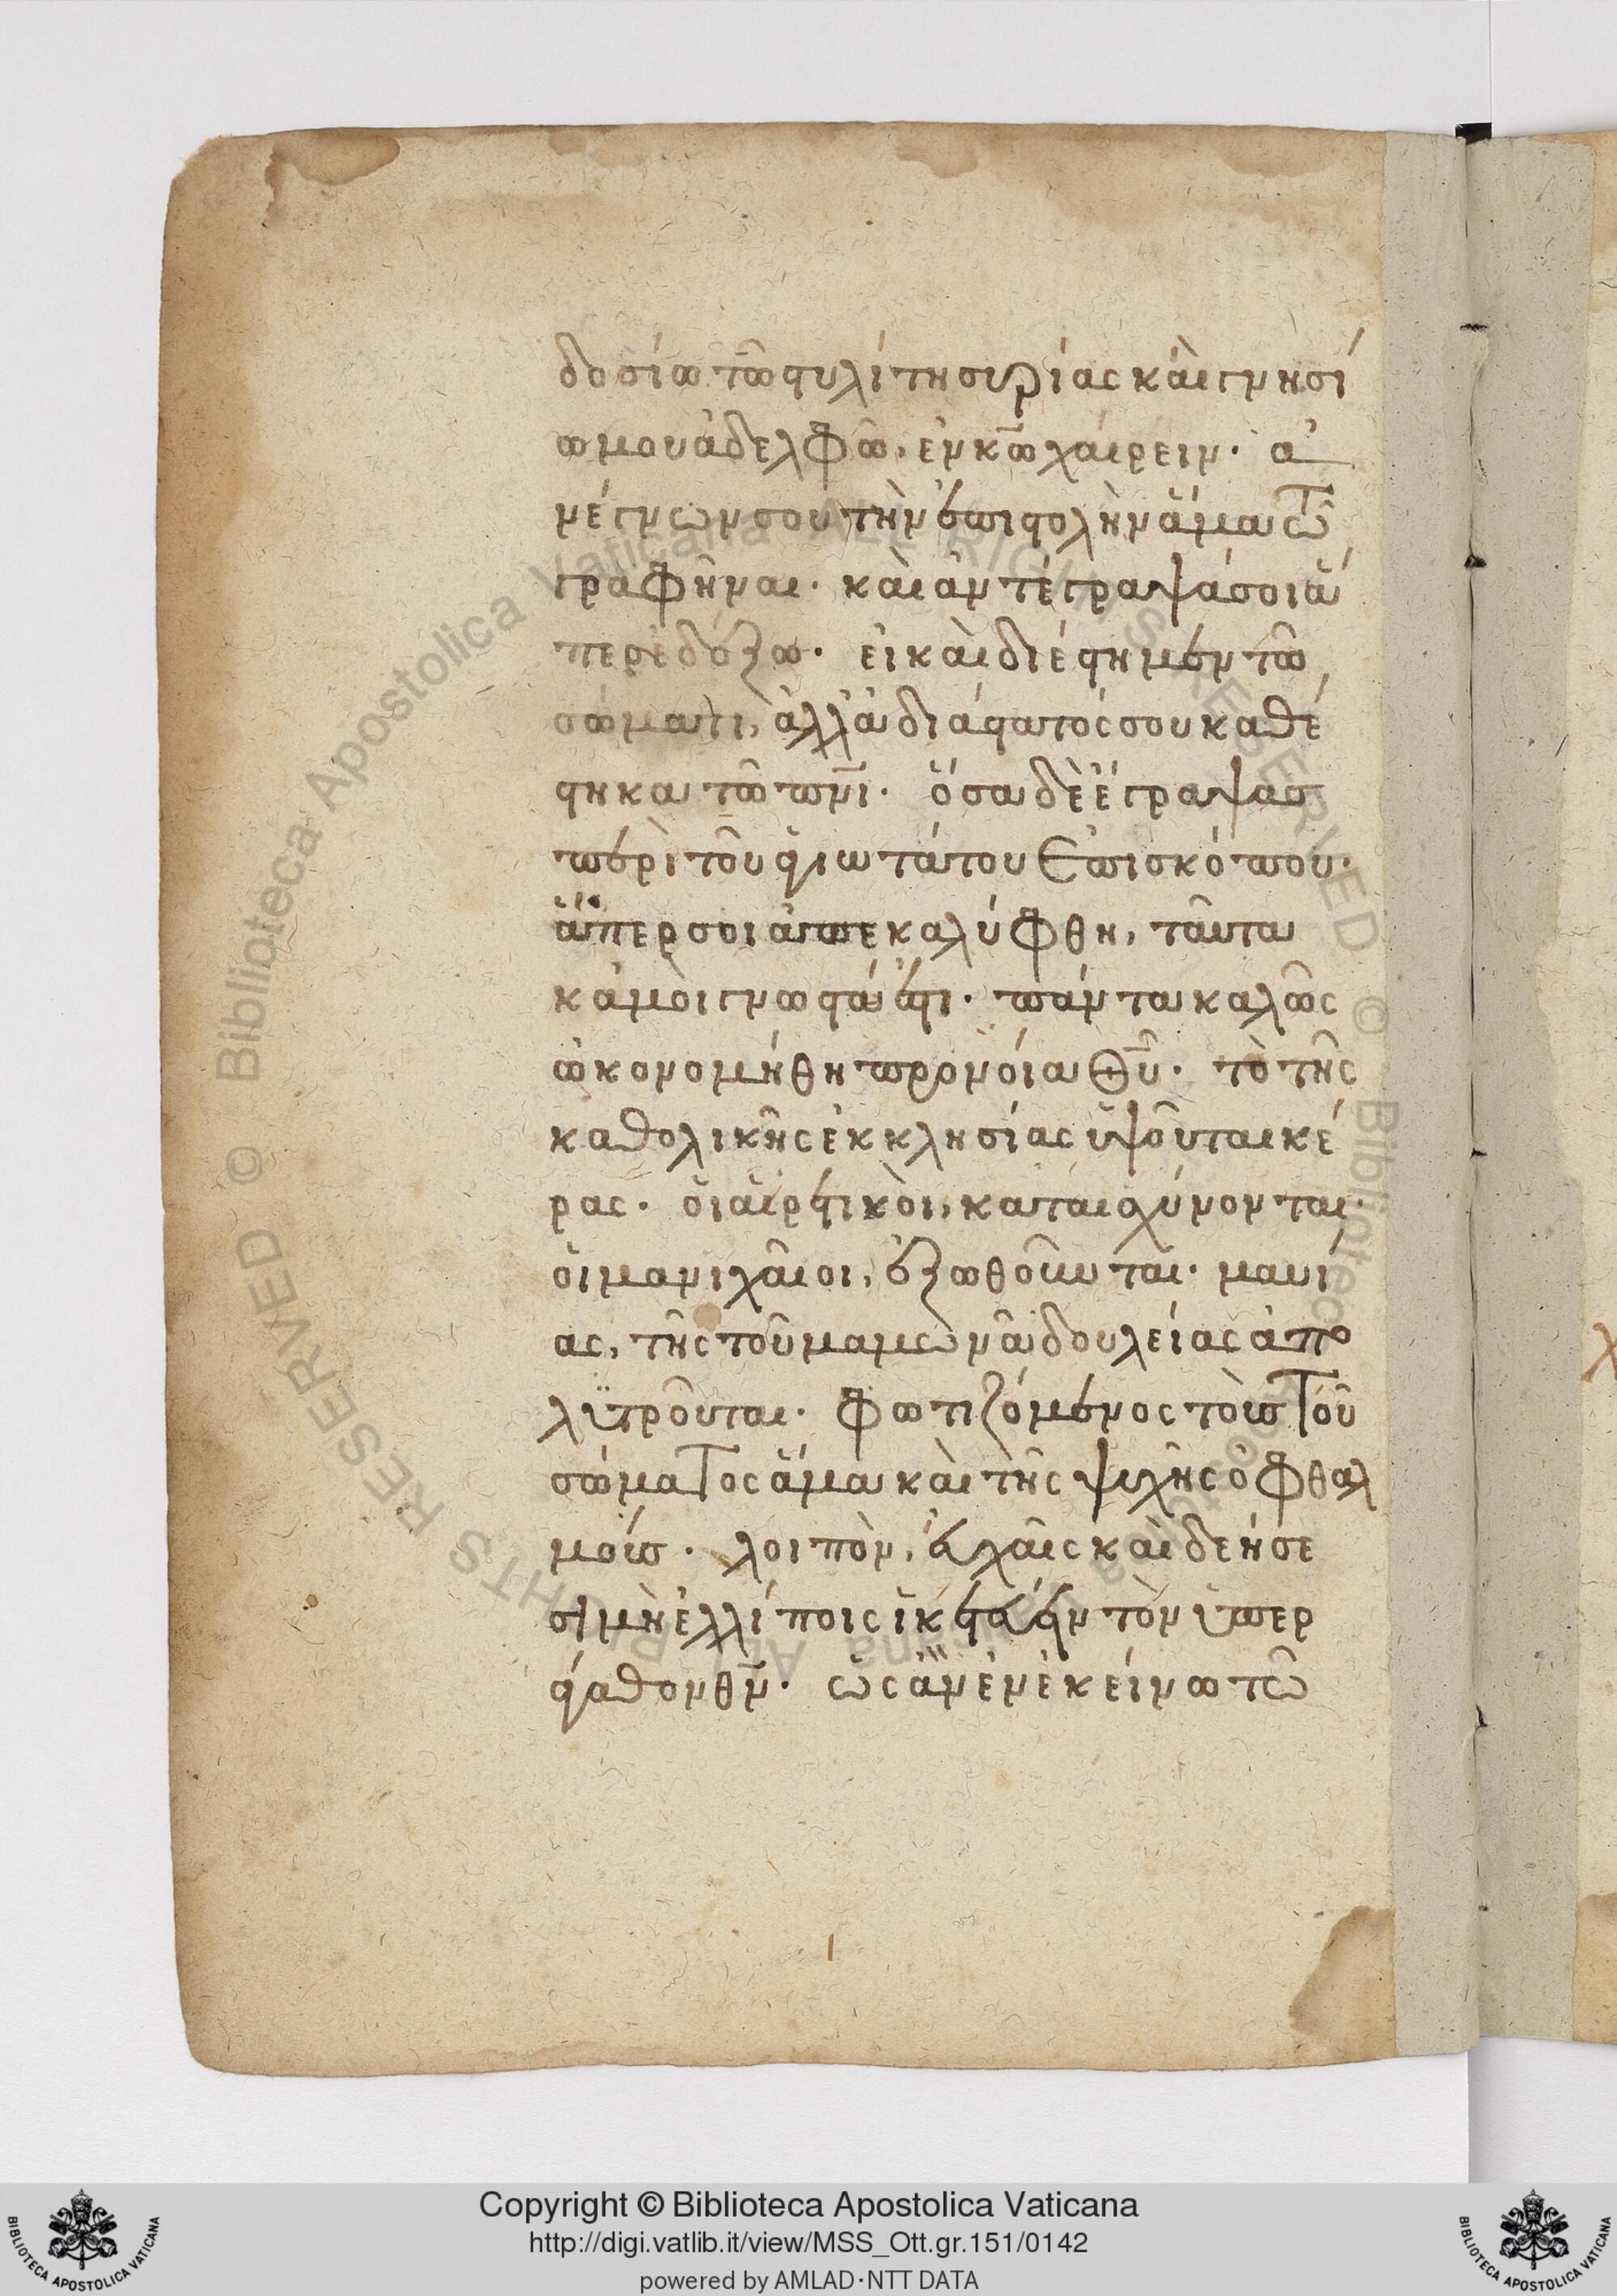 δοσίω τῶ στυλίτη συρίας καὶ γνησί
ω μου ἀδελφῶ, ἐν κ̅ω χαίρειν· ἀ
νέγνων σου τὴν ἐπιστολὴν ἅμα τῶ
γραφῆναι· καὶ ἀντέγραψά σοι ἅ
περ ἐδόξω· εἰ καὶ διέστημεν τῶ
σώματι, ἀλλὰ διάπαντός σου καθέ
στηκα τῶ π̅ν̅ι· ὅσα δὲ ἔγραψας
περὶ τοῦ ἁγιωτάτου ἐπισκόπου·
ἅπερ σοι ἀπεκαλύφθη, ταῦτα
κἀμοὶ γνωστά ἐστι· πάντα καλῶς
ὠκονομήθη προνοία θ̅υ· τὸ τῆς
καθολικῆς ἐκκλησίας ὑψοῦται κέ
ρας· οἱ αἱρετικοὶ, καταισχύνονται·
οἱ μανιχαῖοι, ἐξωθοῦνται· μανι
ας, τῆς τοῦ μαμωνᾶ δουλείας ἀπο
λυτροῦται· φωτιζόμενος τοῖς τοῦ
σώματος ἅμα καὶ τῆς ψυχῆς ὀφθαλ
μοῖς· λοιπὸν, εὐχαῖς καὶ δεήσε
σι μὴ ἐλλίποις ἱκετεύειν τὸν ὑπερ
άγαθον θ̅ν· ὡς ἂν ἐν ἐκείνω τῶ
Copyright © Biblioteca Apostolica Vaticana
http://digi.vatlib.it/view/MSS_Ott.gr.151/0142
powered by AMLAD·NTT DATA
BIBLIOTECA APOSTOLICA VATICANA
BIBLIOTECA APOSTOLICA VATICANA